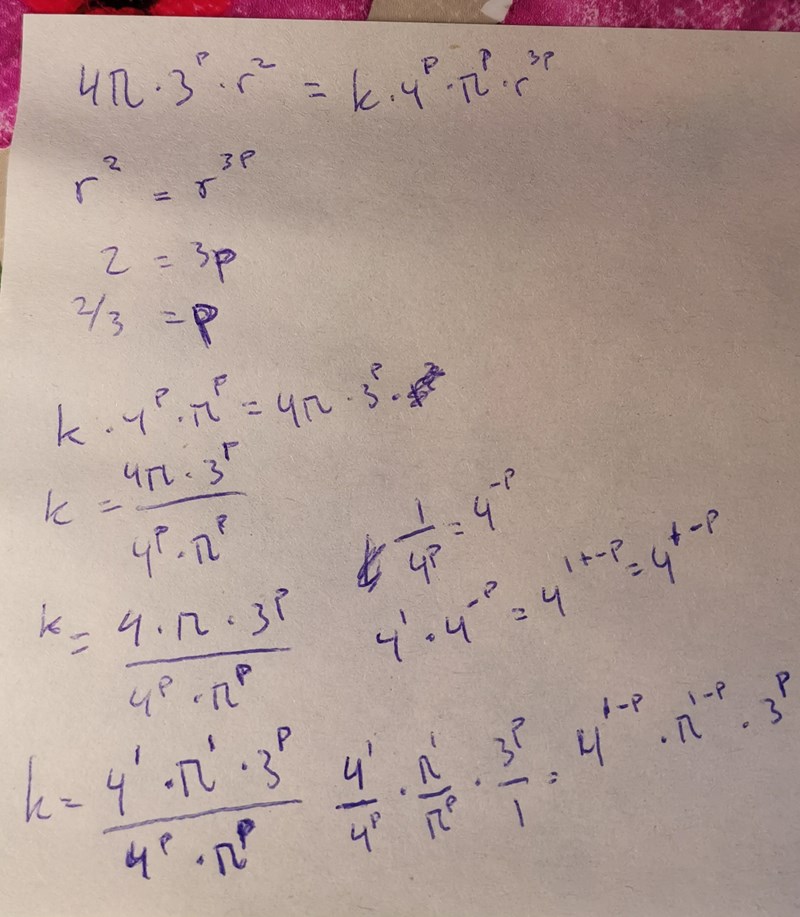 4π · 3^p · r^2 = k · 4^p · π^p · r^3p
r^2 = r^3p
2 = 3p
2/3 = p
k · 4^p · π^p = 4π · 3^p ·
k = 4π · 3^p / 4^p · π^p
1/4^p = 4^-p
k = 4 · π · 3^p / 4^p · π^p
4^1 · 4^-p = 4^1+-p = 4^1-p
k = 4^1 · π^1 · 3^p / 4^p · π^p
4^1/4^p · π^1/π^p · 3^p/1 = 4^1-p · π^1-p · 3^p